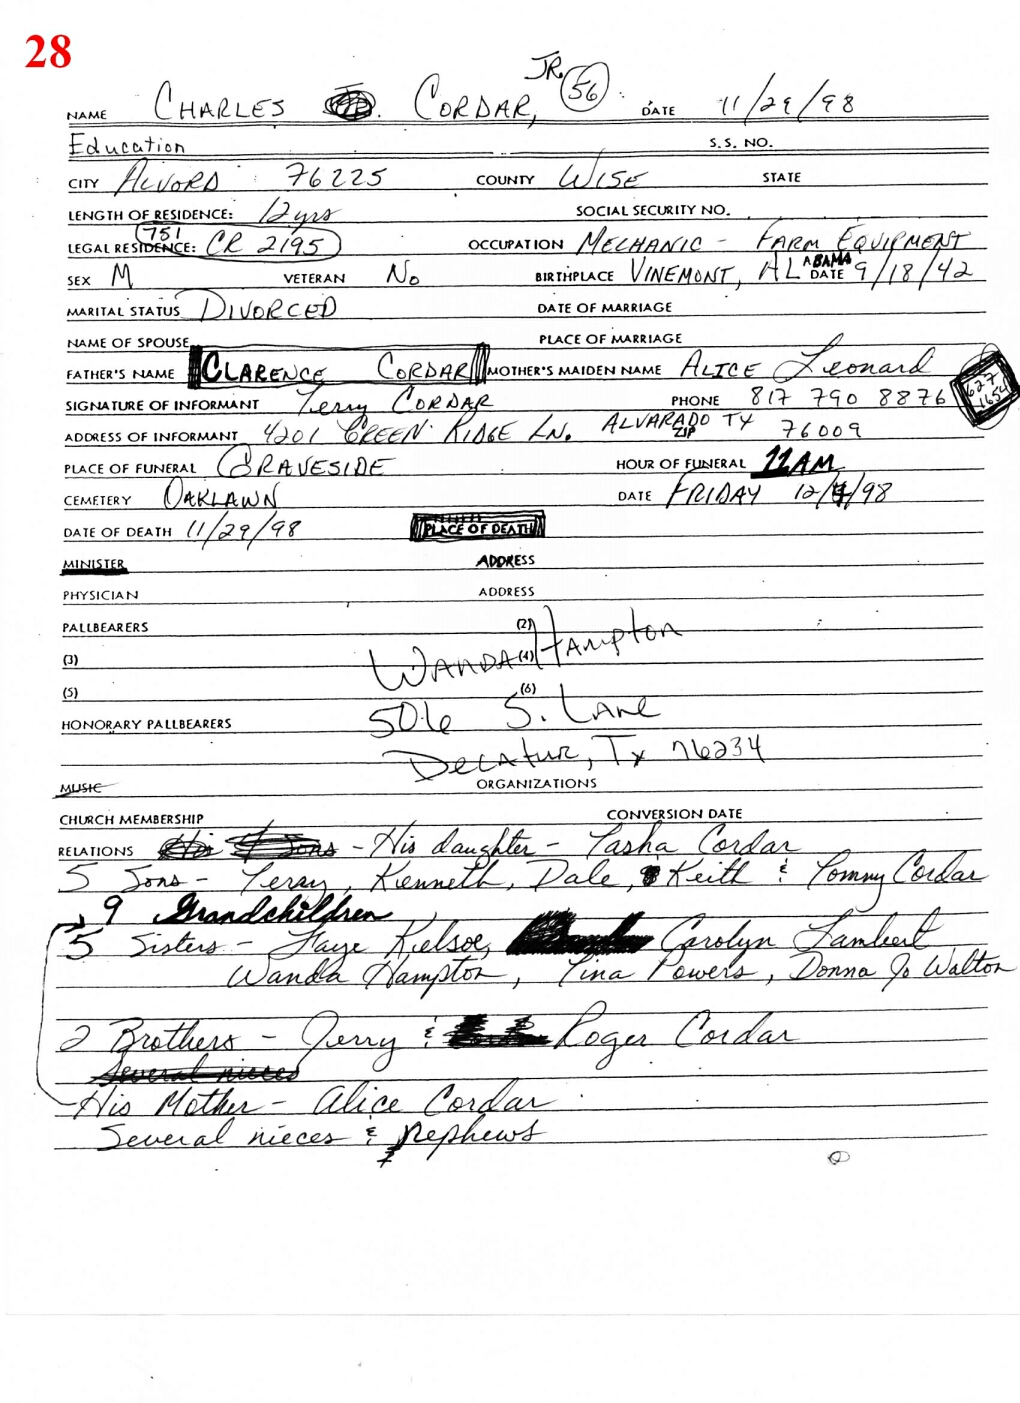 28
NAME CHARLES CORDAR, JR. 56 DATE 11/29/98
Education S.S. NO.
CITY ALVORD 76225 COUNTY WISE STATE
LENGTH OF RESIDENCE: 12 yrs SOCIAL SECURITY NO.
LEGAL RESIDENCE: 751 CR 2195 OCCUPATION MECHANIC - FARM EQUIPMENT
SEX M VETERAN No BIRTHPLACE VINEMONT, ALABAMA DATE 9/18/42
MARITAL STATUS DIVORCED DATE OF MARRIAGE
NAME OF SPOUSE PLACE OF MARRIAGE
FATHER'S NAME CLARENCE CORDAR MOTHER'S MAIDEN NAME ALICE Leonard
SIGNATURE OF INFORMANT Terry CORDAR PHONE 817 790 8876 627 1654
ADDRESS OF INFORMANT 4201 GREEN RIDGE LN. ALVARADO TX ZIP 76009
PLACE OF FUNERAL GRAVESIDE HOUR OF FUNERAL 11AM
CEMETERY OAKLAWN DATE FRIDAY 12/4/98
DATE OF DEATH 11/29/98 PLACE OF DEATH
MINISTER ADDRESS
PHYSICIAN ADDRESS
PALLBEARERS (2)
(3) WANDA (4) Hampton
(5) (6)
HONORARY PALLBEARERS 506 S. LANE
Decatur, Tx 76234
MUSIC ORGANIZATIONS
CHURCH MEMBERSHIP CONVERSION DATE
RELATIONS His 4 Sons - His daughter - Tasha Cordar
5 Sons - Terry, Kenneth, Dale, Keith & Tommy Cordar
9 Grandchildren
5 Sisters - Faye Kelsoe, Carolyn Lambert
Wanda Hampton, Tina Powers, Donna Jo Walton
2 Brothers - Jerry & Roger Cordar
Several nieces
His Mother - Alice Cordar
Several nieces & Nephews